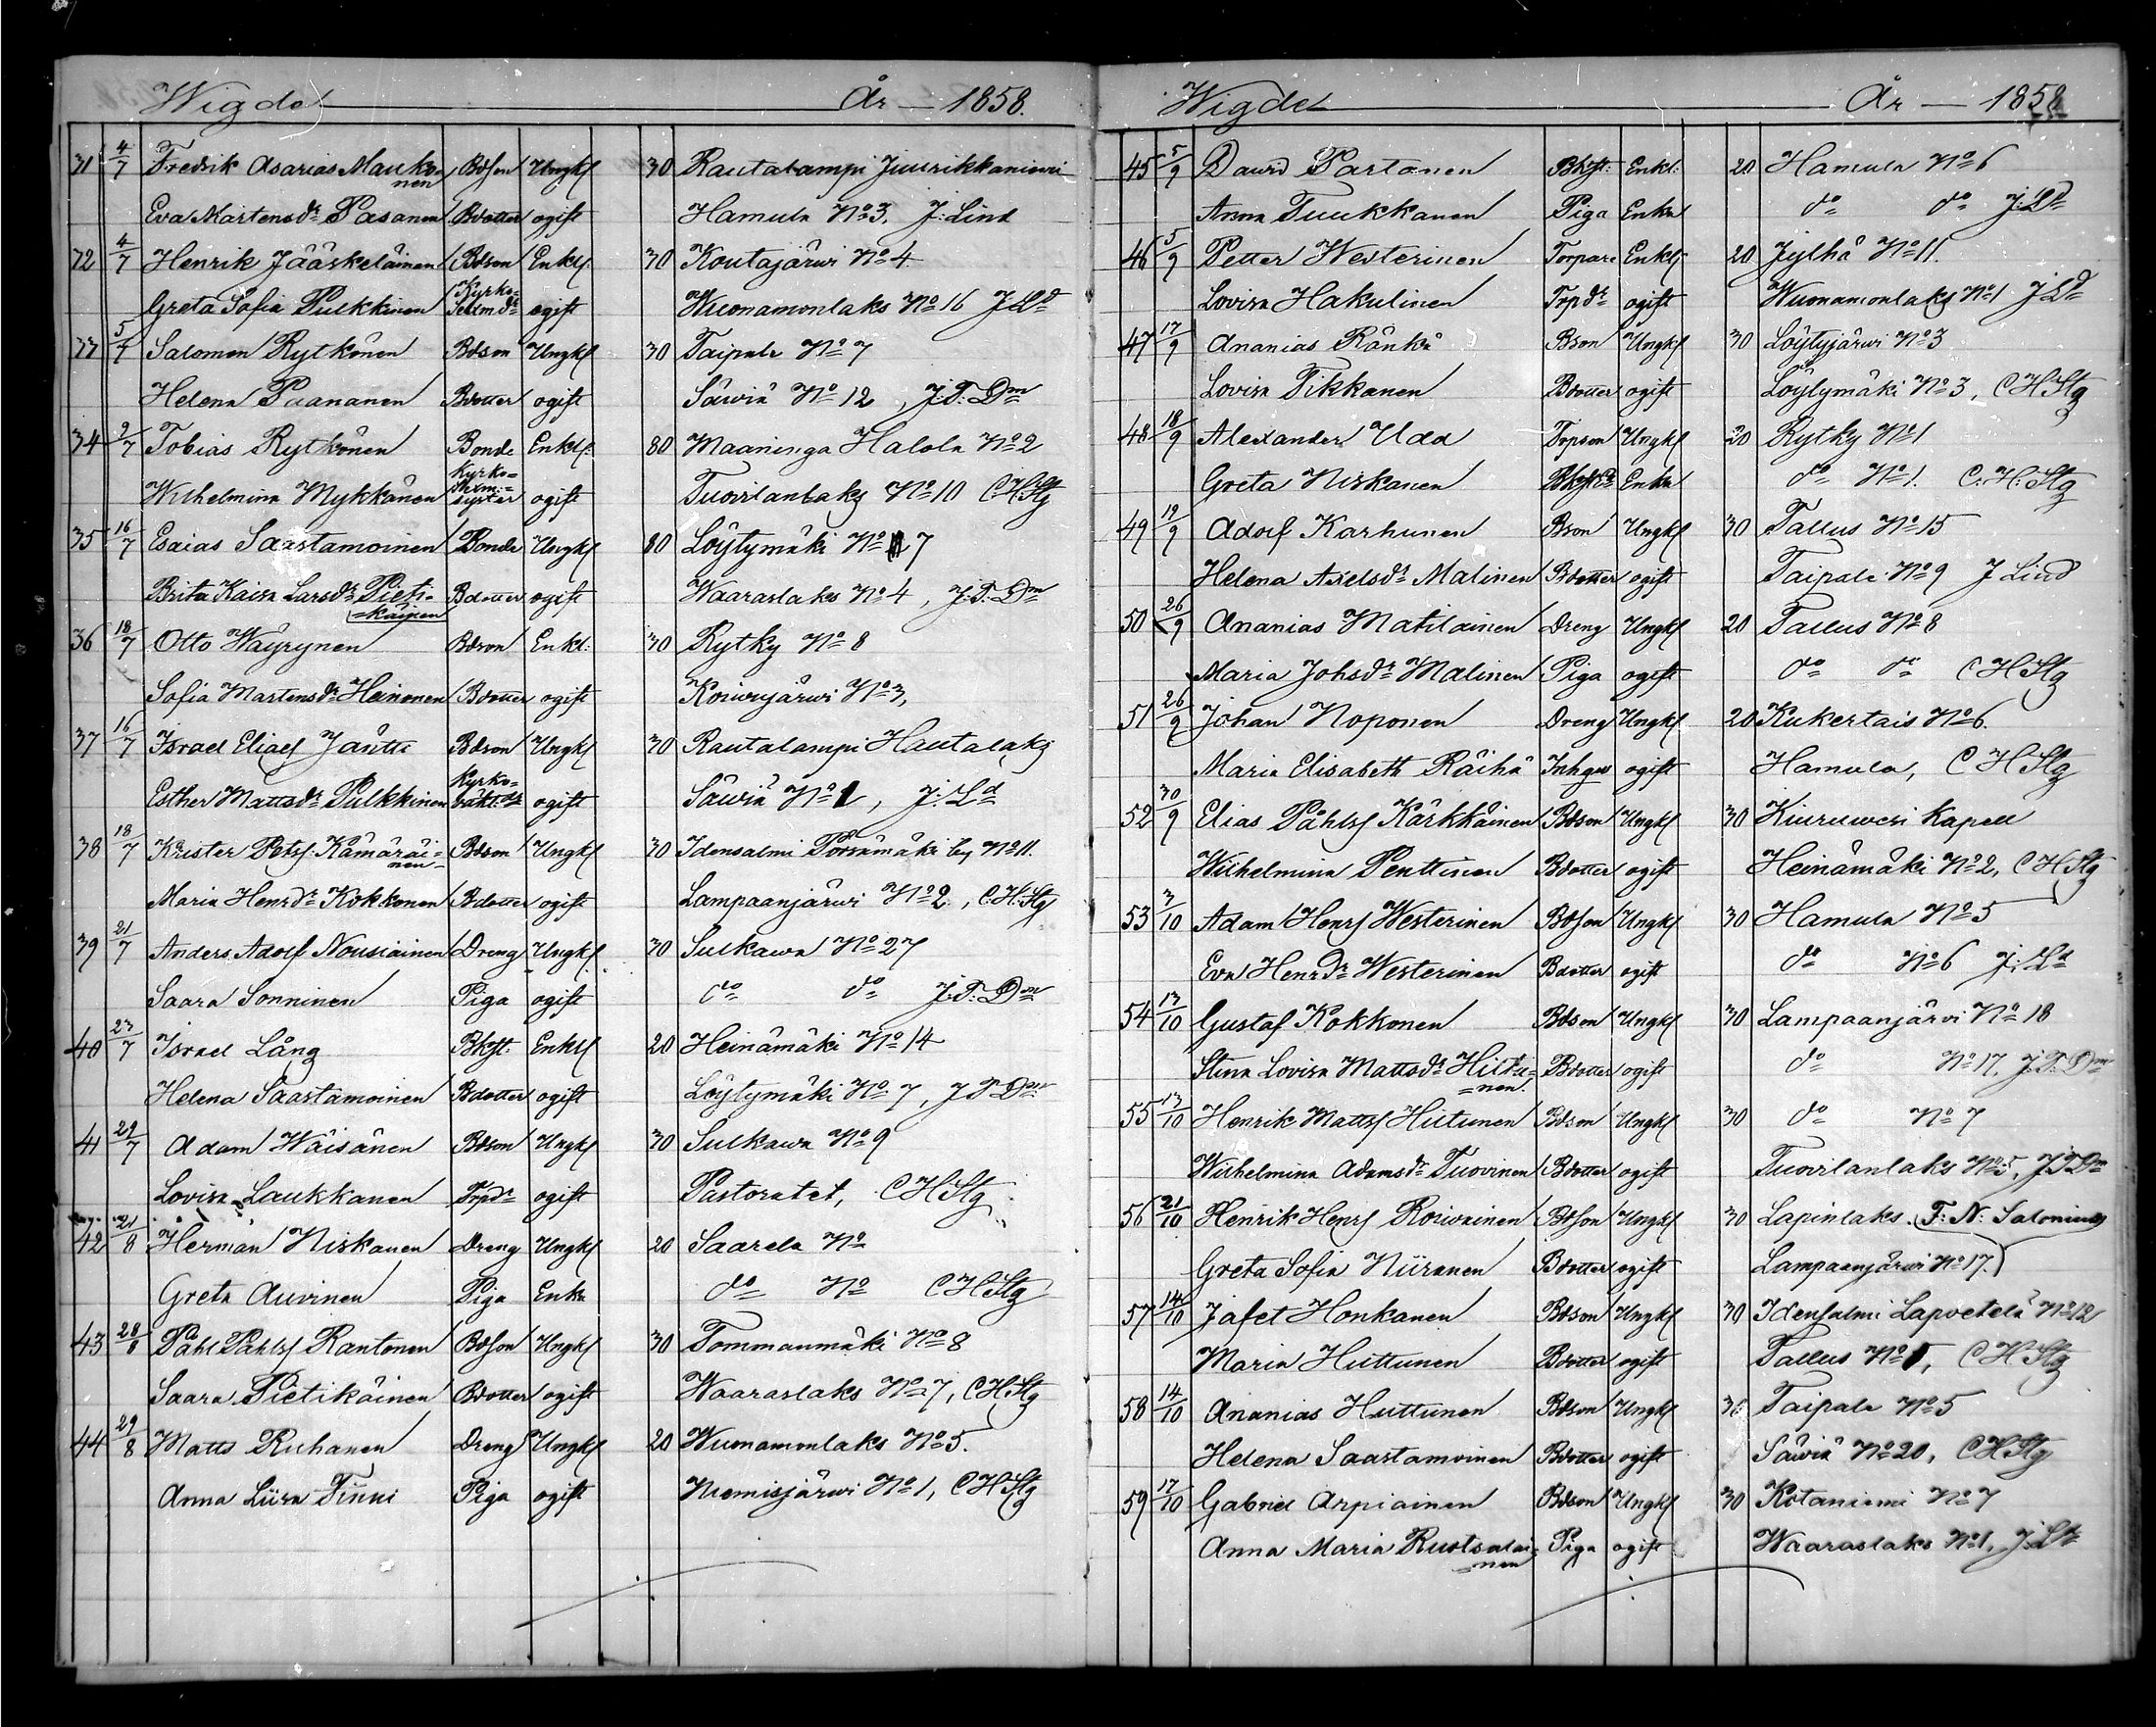 Wigde År 1858.
31 4/7 Fredrik Asarias Mauko- Bdson Ungkl 30 Rautalampi Juurikkaniemi
nen
Eva Mårtensdr Pasanen Bdotter ogift Hamula No 3. J: Lind
72 4/7 Henrik Jääskeläinen Bdson Enkl 30 Koutajärwi No 4.
Greta Sofia Pulkkinen Kyrko- ogift Wuonamonlaks No 16 J Ld
33 5/7 Salomon Rytkönen Bdson Ungkl 30 Taipale No 7
Helena Paananen Bdotter ogift Säwiä No 12, J.T. Dm
34 9/7 Tobias Rytkönen Bonde Enkl: 80 Maaninga Halola No 2
Wilhelmina Mykkänen Kyrko= syster ogift Tuovilanlaks No 10 C.H.Stg
35 16/7 Esaias Saastamoinen Bonde Ungkl 80 Löytymäki No 7
Brita Kaisa Larsdr Pieti- Bdotter ogift Waaraslaks No 4, J:T: Dm
=käinen
36 18/7 Otto Wäyrynen Bdson Enkl: 30 Rytky No 8
Sofia Martensdr Heinonen Bdotter ogift Koivujärwi No 3,
37 16/7 Israel Eliasf Jäntti Bdson Ungkl 30 Rautalampi Hautalaks
Esther Mattsdr Pulkkinen Kyrko- ogift Säwiä No 1, J: Ld
38 18/7 Krister Petsf. Kämäräi- Bdson Ungkl 30 Idensalmi Pörsämäki by No 11.
nen
Maria Henrdr Kokkonen Bdotter ogift Lampaanjärwi No 2., C.H.Stg
39 21/7 Anders Adolf Nousiainen Dreng Ungkl 30 Sulkawa No 27
Saara Sonninen Piga ogift do do J.T. Dm
40 23/7 Israel Lång Bkft. Enkl 20 Heinämäki No 14
Helena Saastamoinen Bdotter ogift Löytymäki No 7, J T Dm
41 29/7 Adam Wäisänen Bdson Ungkl 30 Sulkawa No 9
Lovisa Laukkanen Trpdr ogift Pastoratet, C H Stg
42 21/8 Herman Niskanen Dreng Ungkl 20 Saarela No
Greta Auvinen Piga Enka do No C H Stg
43 28/8 Påhl Påhlsf Rantonen Bdson Ungkl 30 Tommanmäki No 8
Saara Pietikäinen Bdotter ogift Waaraslaks No 7, C H. Stg
44 29/8 Matts Ruhanen Dreng Ungkl 20 Wuonamonlaks No 5.
Anna Liisa Finni Piga ogift Niemisjärwi No 1, C H Stg
Wigde År 1858
45 5/9 David Partanen Bkft: Enkl: 20 Hamula No 6
Anna Tuukkanen Piga Enka do do J: Ld
46 5/9 Petter Westerinen Torpare Enkl 20 Jylhä No 11.
Lovisa Hakulinen Trpdr ogift Wuonamonlaks No 1 J Ld
47 17/9 Ananias Ränkä Bson Ungkl 30 Löytyjärwi No 3
Lovisa Tikkanen Bdotter ogift Löytymäki No 3, C H Stg
48 18/9 Alexander Udd Trpson Ungkl 20 Rytky No 1
Greta Niskanen Enka do No 1. C. H. Stg
49 19/9 Adolf Karhunen Bson Ungkl 30 Tallus No 15
Helena Axelsdr Malinen Bdotter ogift Taipale No 9 J Lind
50 26/9 Ananias Matilainen Dreng Ungkl 20 Tallus No 8
Maria Johsdr Malinen Piga ogift do do C H Stg
51 26/9 Johan Noponen Dreng Ungkl 20 Kukertais No 6.
Maria Elisabeth Räihä Inhgw ogift Hamula, C H Stg
52 30/9 Elias Påhlsf Kärkkäinen Bdson Ungkl 30 Kiuruwesi Kapell
Wilhelmina Penttinen Bdotter ogift Heinämäki No 2, C H Stg
53 3/10 Adam Henrf Westerinen Bdson Ungkl 30 Hamula No 5
Eva Henrdr Westerinen Bdotter ogift do No 6 J: Ld
54 13/10 Gustaf Kokkonen Bdson Ungkl 30 Lampaanjärvi No 18
Stina Lovisa Mattsdr Hiltu- Bdotter ogift do No 17. J.T. Dm
=nen.
55 13/10 Henrik Mattsf Hiltunen Bdson Ungkl 30 do No 7
Wilhelmina Adamsdr Tuovinen Bdotter ogift Tuovilanlaks No 5, J T Dm
56 21/10 Henrik Henrf Roivainen Bdson Ungkl 30 Lapinlaks (F: N: Salonius)
Greta Sofia Niiranen Bdotter ogift Lampaanjärwi No 17.
57 14/10 Jafet Honkanen Bdson Ungkl 30 Idensalmi Lapvetelä No 12
Maria Huttunen Bdotter ogift Tallus No 1, C H Stg
58 14/10 Ananias Huttunen Bdson Ungkl 30 Taipale No 5
Helena Saastamoinen Bdotter ogift Säwiä No 20, C H Stg
59 17/10 Gabriel Arpiainen Bdson Ungkl 30 Kotaniemi No 7
Anna Maria Ruotsalai- Piga ogift Waaraslaks No 1, J: Ld
nen